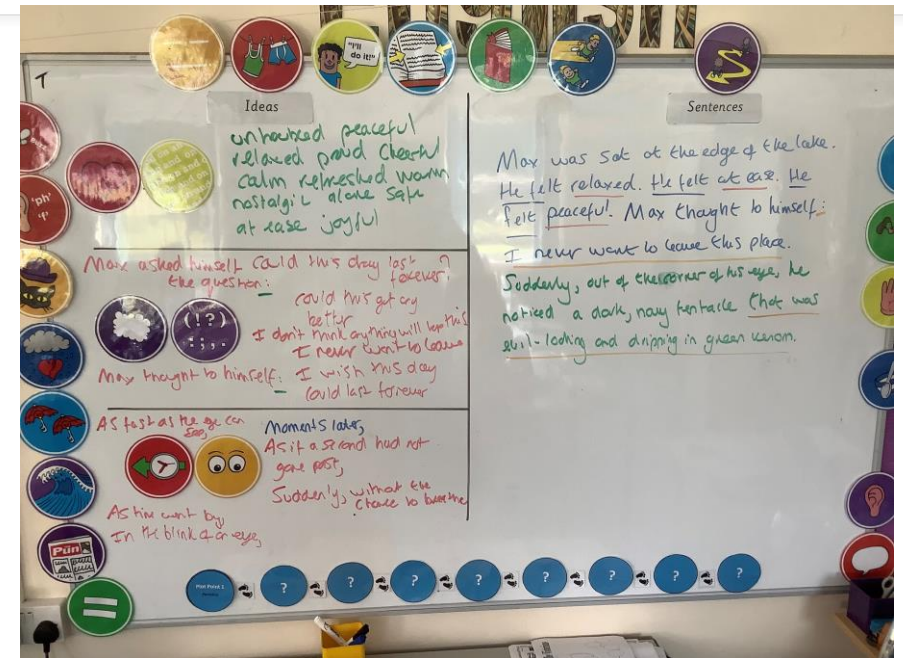 English
"I'll do it!"
Ideas
Sentences
T
'ph'
'f'
peaceful
relaxed proud cheerful
calm refreshed warm
nostalgic alone safe
at ease joyful
Max asked himself could this day last
the question: forever?
could this get any
better
I don't think anything will top this
I never want to leave
(!?)
Max thought to himself: I wish this day
could last forever
As fast as the eye can
see,
Moments later,
As if a second had not
gone past,
Suddenly, without the
chance to breathe
As time went by,
In the blink of an eye,
Max was sat at the edge of the lake.
He felt relaxed. He felt at ease. He
felt peaceful. Max thought to himself:
I never want to leave this place.
Suddenly, out of the corner of his eye, he
noticed a dark, navy tentacle that was
evil-looking and dripping in green venom.
Pun
=
Plot Point 1
?
?
?
?
?
?
?
?